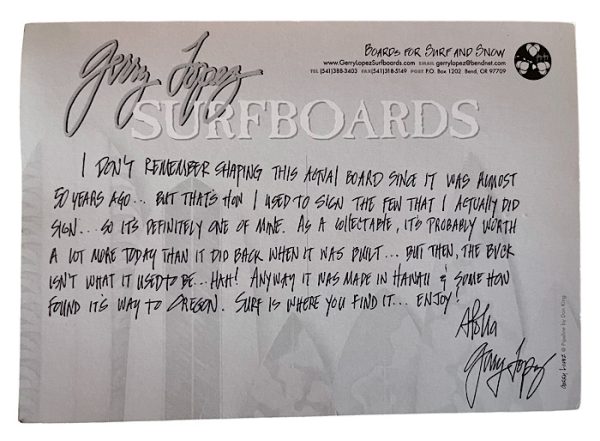 Gerry Lopez
SURFBOARDS
BOARDS FOR SURF AND SNOW
www.GerryLopezSurfboards.com EMAIL gerrylopez@bendnet.com
TEL (541)388-3403 FAX(541)318-5149 POST P.O. Box 1202, Bend, OR 97709
I DON'T REMEMBER SHAPING THIS ACTUAL BOARD SINCE IT WAS ALMOST
50 YEARS AGO... BUT THAT'S HOW I USED TO SIGN THE FEW THAT I ACTUALLY DID
SIGN... SO IT'S DEFINITELY ONE OF MINE. AS A COLLECTABLE, IT'S PROBABLY WORTH
A LOT MORE TODAY THAN IT DID BACK WHEN IT WAS BUILT... BUT THEN, THE BUCK
ISN'T WHAT IT USED TO BE... HAH! ANYWAY IT WAS MADE IN HAWAII & SOME HOW
FOUND IT'S WAY TO OREGON. SURF IS WHERE YOU FIND IT... ENJOY!
Aloha
Gerry Lopez
© Pipeline by Don King